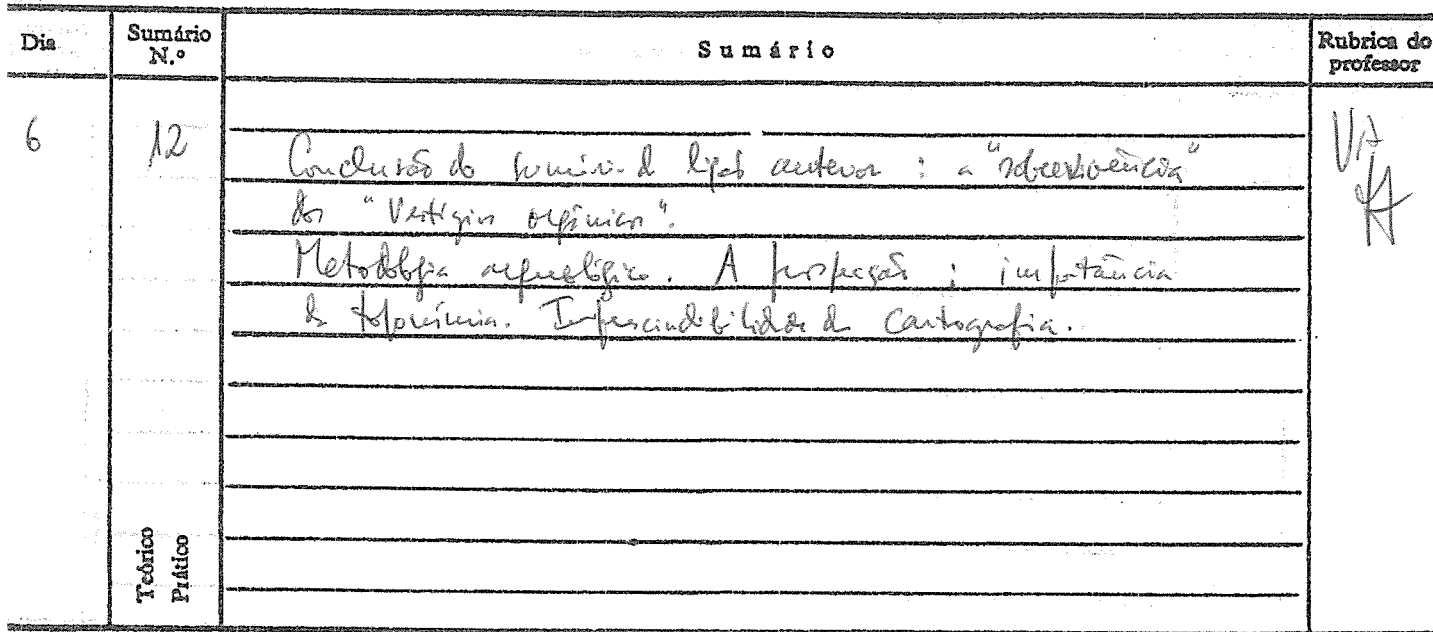 Dia
Sumário N.º
Sumário
Rubrica do professor
6
12
Conclusão do sumário da lição anterior : a "sobrevivência"
dos "Vestígios orgânicos".
Metodologia arqueológica. A prospecção ; importância
da toponímia. Imprescindibilidade da Cartografia.
Teórico
Prático